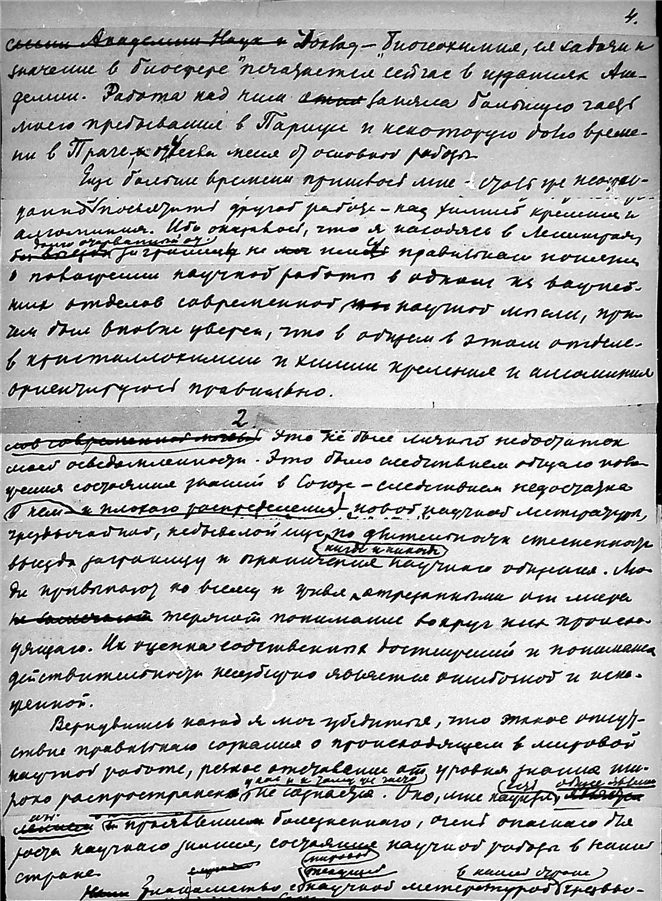 4.
Академии Наук и Доклад – "Биогеохимия, ея задачи и
значение в биосфере" печатается сейчас в изданиях Ака-
демии. Работа над ним заняла большую часть
моего пребывания в Париже и некоторую долю време-
ни в Праге, и меня от основной работы.
Еще больше времени пришлось мне –
посвятить другой работе – над химией кремния и
алюминия. Ибо оказалось, что я находясь в Ленинграде,
долго за границы не имел правильного понятия
о положении научной работы в одном из важней-
ших отделов современной научной мысли, при-
чем был вполне уверен, что в общем в этом отделе –
в кристаллохимии и химии кремния и алюминия
ориентируюсь правильно.
2
современной Это не был личный недостаток
моей осведомленности. Это было следствием общего поло-
жения состояния знаний в Союзе – следствием недостатка
в нем и плохого распределения новой научной литературы,
чрезвычайной, небывалой еще по длительности стесненности
выезда заграницу и ограничения научного общения. Лю-
ди привыкают ко всему и живя отрезанными от мира
не замечают теряют понимание вокруг них происхо-
дящего. Их оценка собственных достижений и понимание
действительности неизбежно является ошибочной и иска-
женной.
Вернувшись назад я мог убедиться, что такое отсут-
ствие правильного сознания о происходящем в мировой
научной работе, резкое отставание от уровня знания ши-
роко распространено у нас и к тому же часто не сознается. Оно, мне кажется, есть
проявлением болезненного, очень опасного для
роста научного знания, состояния научной работы в нашей
стране.
мировой
в нашей стране
Знакомство с текущей научной литературой чрезвы-